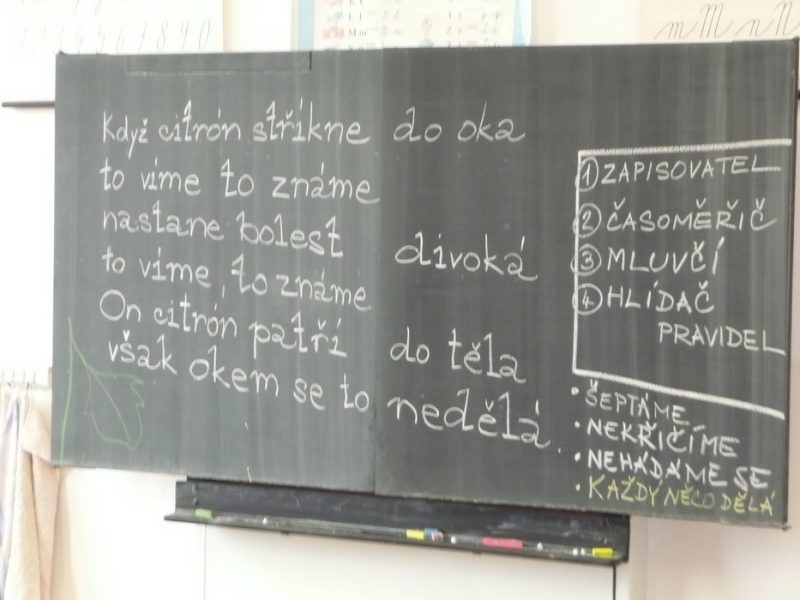 1234567890
mMnN
Když citrón stříkne do oka
to víme to známe
nastane bolest divoká
to víme, to známe
On citrón patří do těla
však okem se to nedělá..
1 ZAPISOVATEL
2 ČASOMĚŘIČ
3 MLUVČÍ
4 HLÍDAČ
PRAVIDEL
• ŠEPTÁME
• NEKŘIČÍME
• NEHÁDÁME SE
• KAŽDÝ NĚCO DĚLÁ